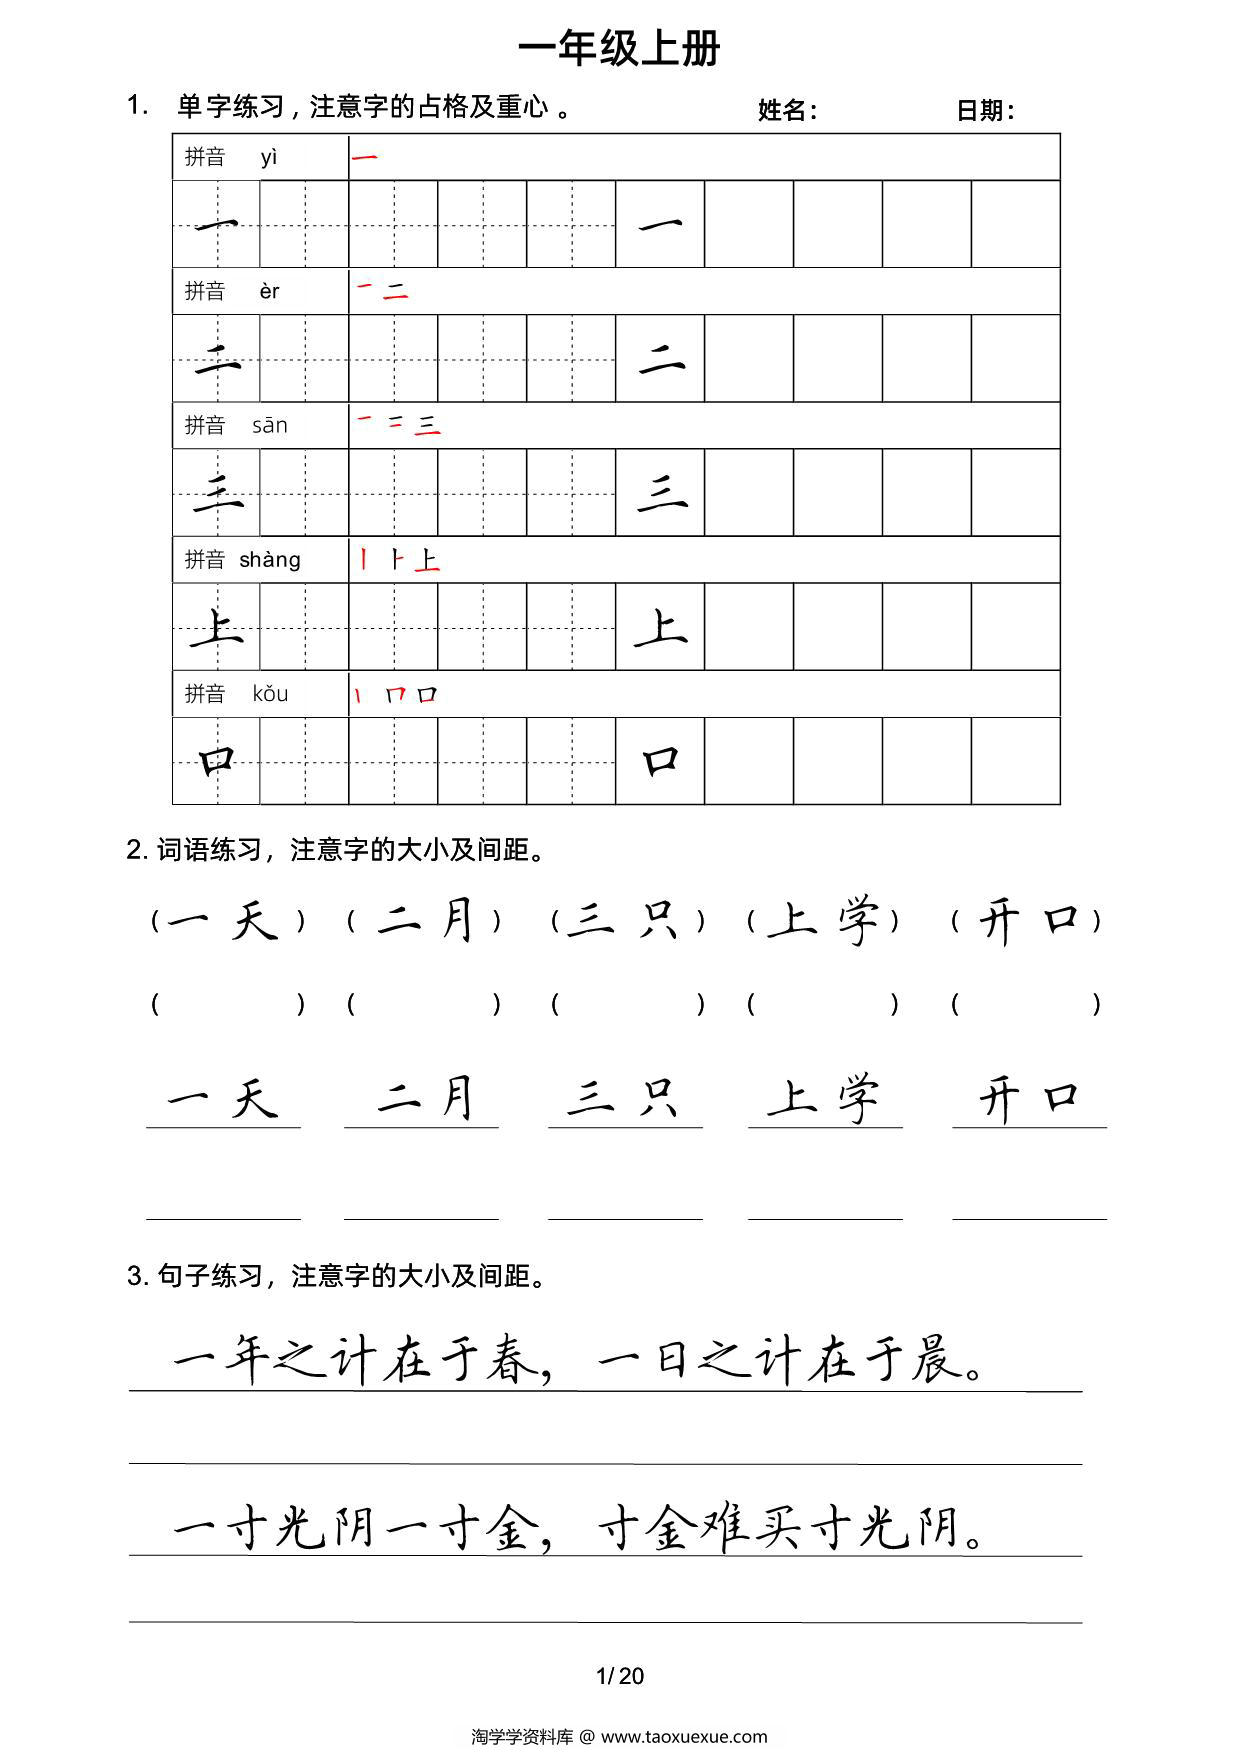 一年级上册
1. 单字练习，注意字的占格及重心。 姓名： 日期：
拼音 yì 一
一 一
拼音 èr 一 二
二 二
拼音 sān 一 二 三
三 三
拼音 shàng 丨 ⺊ 上
上 上
拼音 kǒu 丨 冂 口
口 口
2. 词语练习，注意字的大小及间距。
（一天）（二月）（三只）（上学）（开口）
（ ）（ ）（ ）（ ）（ ）
一天 二月 三只 上学 开口
3. 句子练习，注意字的大小及间距。
一年之计在于春，一日之计在于晨。
一寸光阴一寸金，寸金难买寸光阴。
1/20
淘学学资料库 @ www.taoxuexue.com